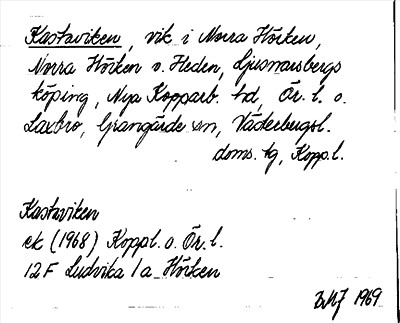 Kastaviken, vik i Norra Hörken,
Norra Hörken o. Heden, Ljusnarsbergs
köping, Nya Kopparb. hd, Ör. l. o.
Laxbro, Grangärde sn, Västerbergsl.
doms. tg, Kopp. l.
Kastaviken
ek (1968) Koppl. o. Ör. l.
12 F Ludvika 1 a Hörken
1969